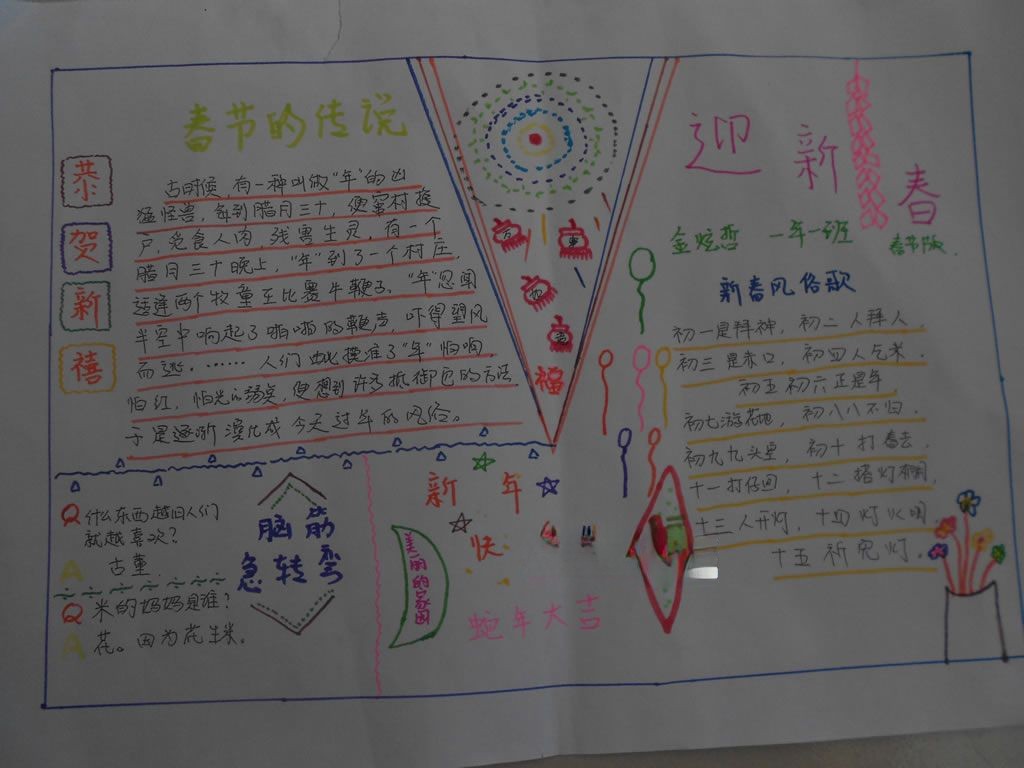 春节的传说
共
贺
新
禧
古时候,有一种叫做“年”的凶
猛怪兽,每到腊月三十,便窜村挨
户,觅食人肉,残害生灵,有一个
腊月三十晚上,“年”到了一个村庄,
适逢两个牧童在比赛牛鞭子,“年”忽闻
半空中响起了啪啪的鞭声,吓得望风
而逃.……人们 摸准了“年”怕响,
怕红,怕光的弱点,便想到许多抵御它的方法,
于是逐渐演化成今天过年的风俗。
福
迎新春
金炫哲 一年一班 春节版.
新春风俗歌
初一是拜神, 初二人拜人
初三是赤口, 初四人乞米.
初五初六正是年
初七游花地, 初八八不归.
初九九头空, 初十打春去.
十一打仔回, 十二搭灯棚,
十三人开灯, 十四灯火明
十五祈完灯.
Q 什么东西越旧人们
就越喜欢?
A 古董
Q 米的妈妈是谁?
A 花。因为花生米.
脑筋
急转弯
新年
快
美丽的家园
蛇年大吉